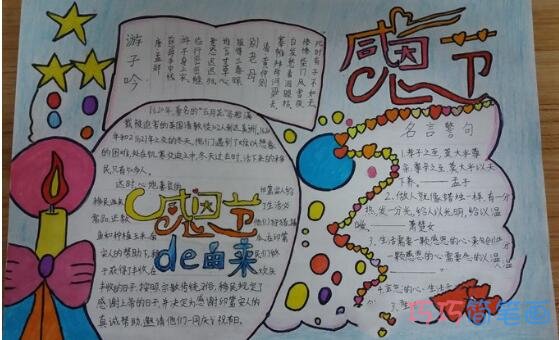 感恩节
游子吟
唐 孟郊
慈母手中线
游子身上衣
临行密密缝
意恐迟迟归
谁言寸草心
报得三春晖
别老母
清 黄仲则
搴帷拜母河梁去
白发愁看泪眼枯
惨惨柴门风雪夜
此时有子不如无
1620年,著名的"五月花"号船满
载被迫害的英国清教徒102人到达美洲,1620
年和1621年之交的冬天,他们遇到了难以想象
的困难,处在饥寒交迫之中,冬天过去时,活下来的移
民只有50多人。
这时,心地善良的 印第安人给
移民送来 生活必
需品,还教 他们狩猎、捕
鱼和种植玉米、
安人的帮助下,
于获得了丰收,在 欢庆
丰收的日子,按照宗教传统习俗,移民规定了
感谢上帝的日子,并决定为感谢印第安人的
真诚帮助,邀请他们一同庆祝节日。
感恩节
de由来
名言警句
1.孝子之至,莫大乎尊
亲;尊亲之至,莫大乎以天
下养。——孟子
2.做人就像蜡烛一样,有一分
热,发一分光,给人以光明,给以温
暖。——萧楚女
3.生活需要一颗感恩的心来创造,
一颗感恩的心需要
巧巧简笔画